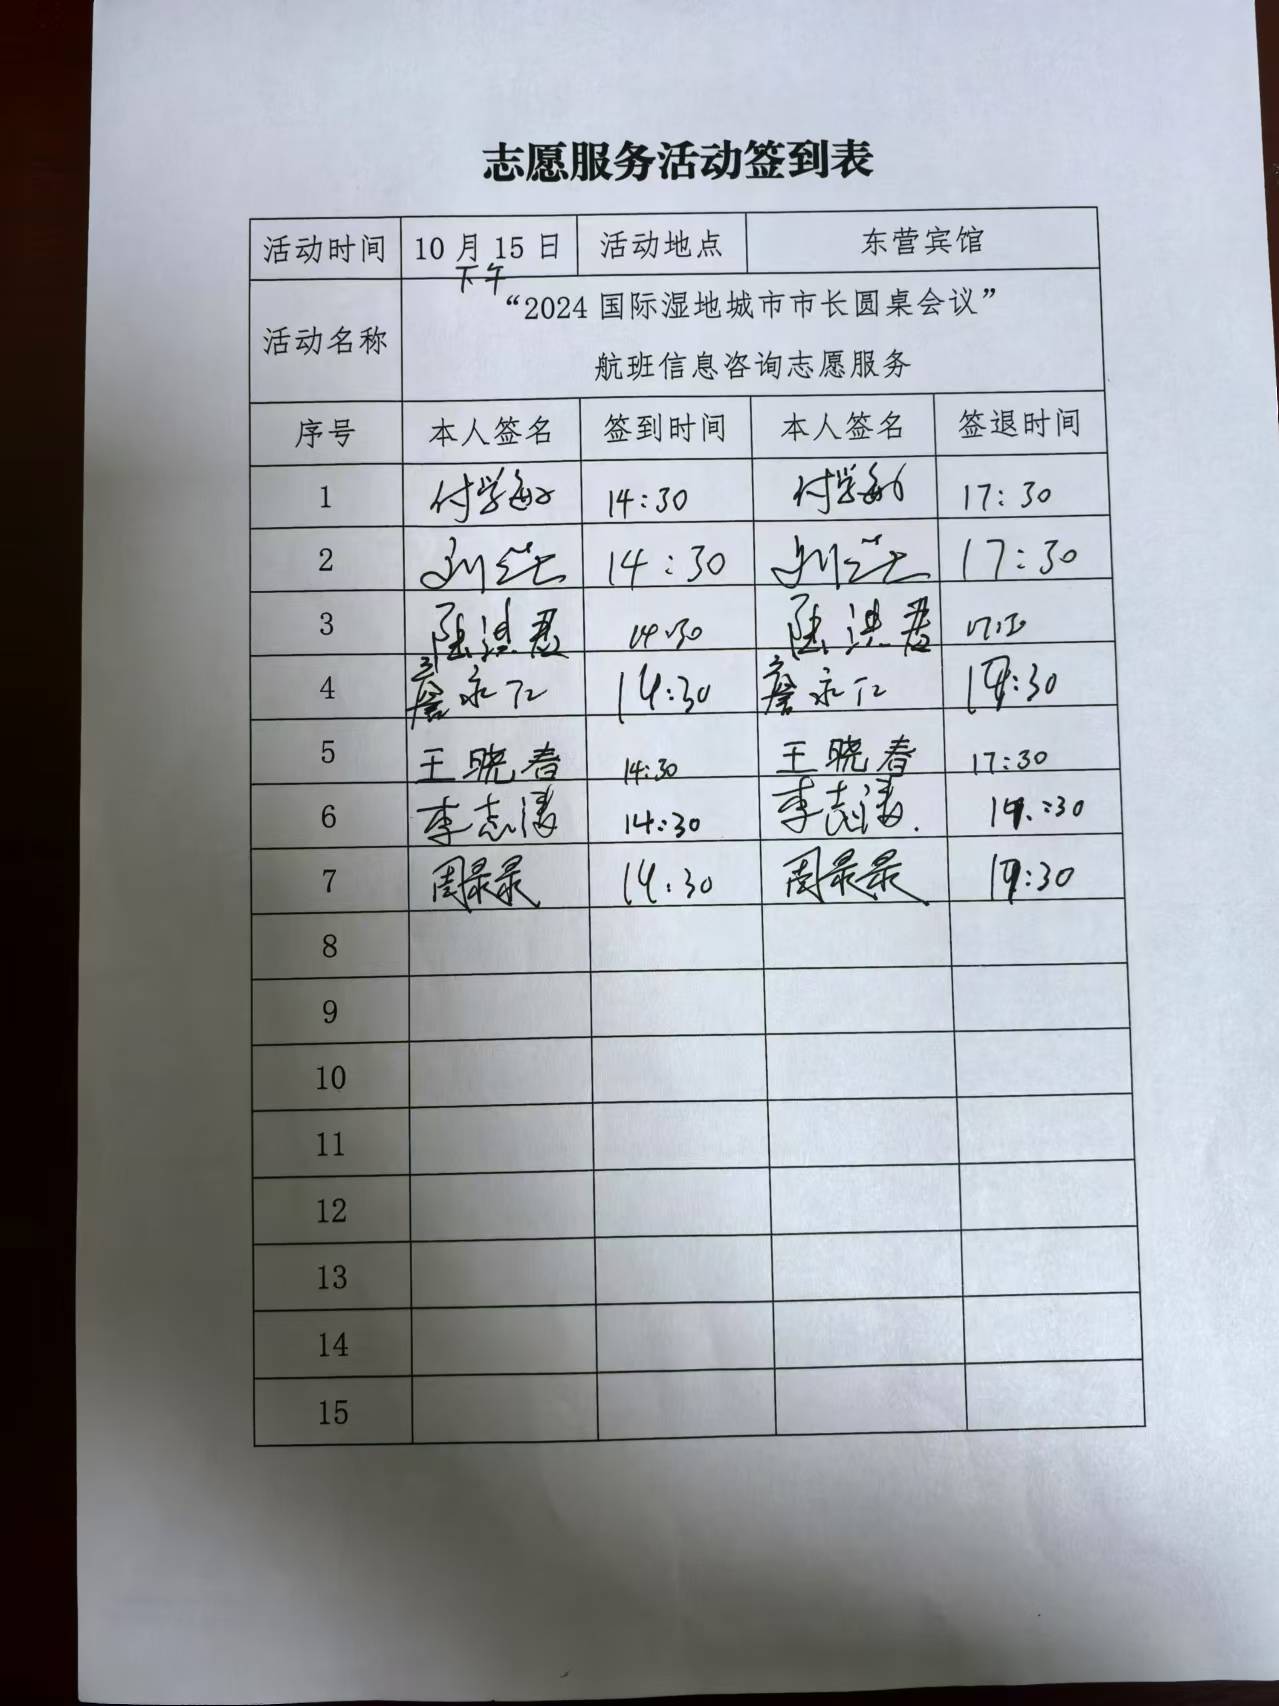 志愿服务活动签到表
活动时间 10月15日 活动地点 东营宾馆
下午
活动名称 “2024国际湿地城市市长圆桌会议”
航班信息咨询志愿服务
序号 本人签名 签到时间 本人签名 签退时间
1 付学敏 14:30 付学敏 17:30
2 刘 14:30 刘 17:30
3 陆洪君 14:30 陆洪君
4 詹永仁 14:30 詹永仁 17:30
5 王晓春 14:30 王晓春 17:30
6 李志涛 14:30 李志涛 17:30
7 周录录 14:30 周录录 17:30
8
9
10
11
12
13
14
15